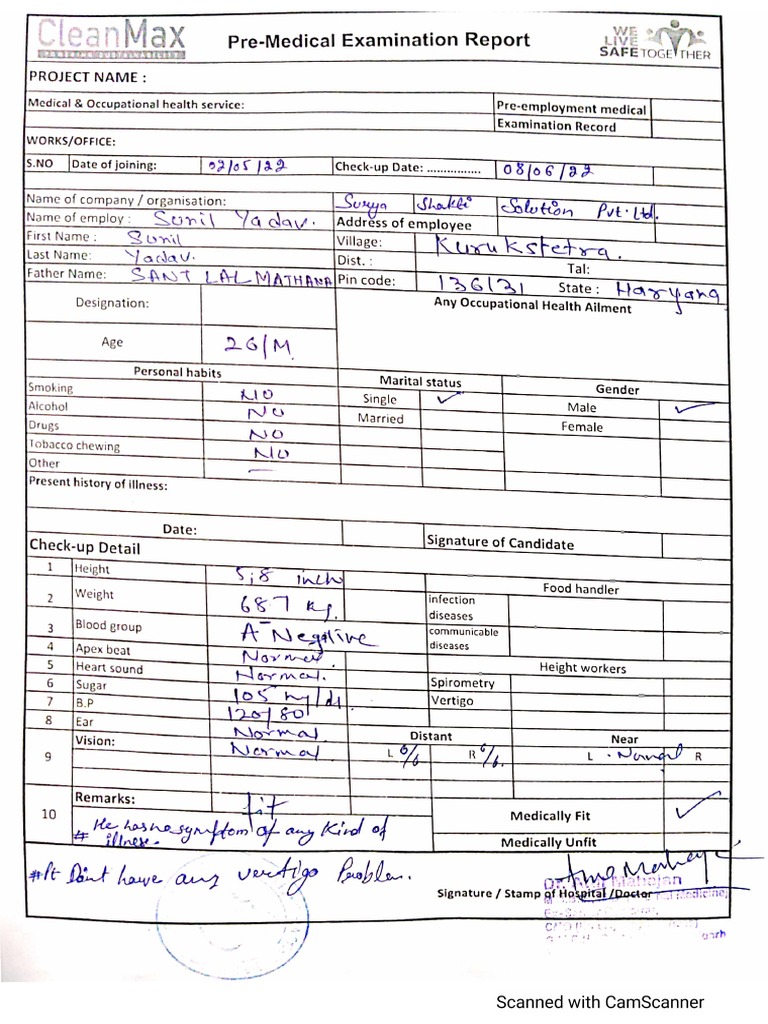 CleanMax
Pre-Medical Examination Report
WE LIVE SAFE TOGETHER
PROJECT NAME :
Medical & Occupational health service:
Pre-employment medical
Examination Record
WORKS/OFFICE:
S.NO Date of joining: 02/05/22 Check-up Date: ............... 08/06/22
Name of company / organisation: Surya Shakti Solution Pvt. Ltd.
Name of employ : Sunil Yadav. Address of employee
First Name : Sunil Village: Kurukstetra.
Last Name: Yadav. Dist. : Tal:
Father Name: SANT LAL MATHANA Pin code: 136131 State : Haryana
Designation: Any Occupational Health Ailment
Age 26/M
Personal habits Marital status Gender
Smoking NO Single ✓ Male ✓
Alcohol NO Married Female
Drugs NO
Tobacco chewing NO
Other —
Present history of illness:
Date: Signature of Candidate
Check-up Detail
1 Height 5,8 inch Food handler
2 Weight 687 kg. infection diseases
3 Blood group A- Negative communicable diseases
4 Apex beat Normal.
5 Heart sound Normal. Height workers
6 Sugar 105 mg/dl Spirometry
7 B.P 120/80 Vertigo
8 Ear Normal Distant Near
9 Vision: Normal L 6/6 R 6/6. L . Normal R
10 Remarks: fit Medically Fit ✓
# He has no symptom of any kind of
illness. Medically Unfit
# Pt Don't have any vertigo Problem.
Signature / Stamp of Hospital /Doctor
Mahajan
Medicine,
Scanned with CamScanner